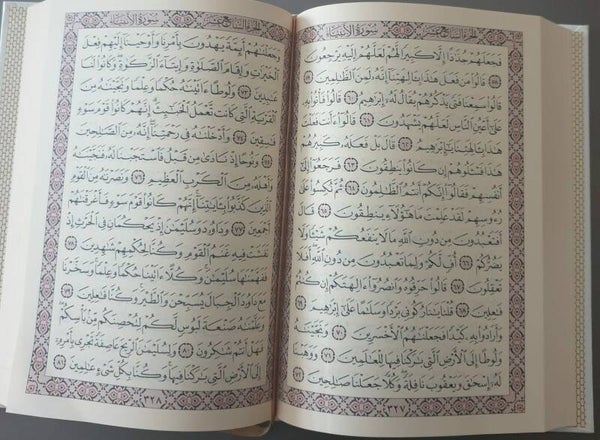 سورة الأنبياء
الجزء السابع عشر
فجعلهم جذاذا إلا كبيرا لهم لعلهم إليه يرجعون
٥٨ قالوا من فعل هذا بآلهتنا إنه لمن الظالمين ٥٩
قالوا سمعنا فتى يذكرهم يقال له إبراهيم ٦٠ قالوا فأتوا به
على أعين الناس لعلهم يشهدون ٦١ قالوا ءأنت فعلت
هذا بآلهتنا يا إبراهيم ٦٢ قال بل فعله كبيرهم
هذا فسألوهم إن كانوا ينطقون ٦٣ فرجعوا إلى
أنفسهم فقالوا إنكم أنتم الظالمون ٦٤ ثم نكسوا على
رءوسهم لقد علمت ما هؤلاء ينطقون ٦٥ قال
أفتعبدون من دون الله ما لا ينفعكم شيئا ولا
يضركم ٦٦ أف لكم ولما تعبدون من دون الله أفلا
تعقلون ٦٧ قالوا حرقوه وانصروا ءالهتكم إن كنتم
فاعلين ٦٨ قلنا يا نار كوني بردا وسلاما على إبراهيم ٦٩
وأرادوا به كيدا فجعلناهم الأخسرين ٧٠ ونجيناه
ولوطا إلى الأرض التي باركنا فيها للعالمين ٧١ ووهبنا
له إسحاق ويعقوب نافلة وكلا جعلنا صالحين ٧٢
٣٢٧
الجزء السابع عشر
سورة الأنبياء
وجعلناهم أئمة يهدون بأمرنا وأوحينا إليهم فعل
الخيرات وإقام الصلاة وإيتاء الزكاة وكانوا لنا
عابدين ٧٣ ولوطا ءاتيناه حكما وعلما ونجيناه من
القرية التي كانت تعمل الخبائث إنهم كانوا قوم سوء
فاسقين ٧٤ وأدخلناه في رحمتنا إنه من الصالحين
٧٥ ونوحا إذ نادى من قبل فاستجبنا له فنجيناه
وأهله من الكرب العظيم ٧٦ ونصرناه من القوم
الذين كذبوا بآياتنا إنهم كانوا قوم سوء فأغرقناهم
أجمعين ٧٧ وداوود وسليمان إذ يحكمان في الحرث إذ
نفشت فيه غنم القوم وكنا لحكمهم شاهدين ٧٨
ففهمناها سليمان وكلا ءاتينا حكما وعلما وسخرنا
مع داوود الجبال يسبحن والطير وكنا فاعلين ٧٩
وعلمناه صنعة لبوس لكم لتحصنكم من بأسكم
فهل أنتم شاكرون ٨٠ ولسليمان الريح عاصفة تجري بأمره
إلى الأرض التي باركنا فيها وكنا بكل شيء عالمين ٨١
٣٢٨